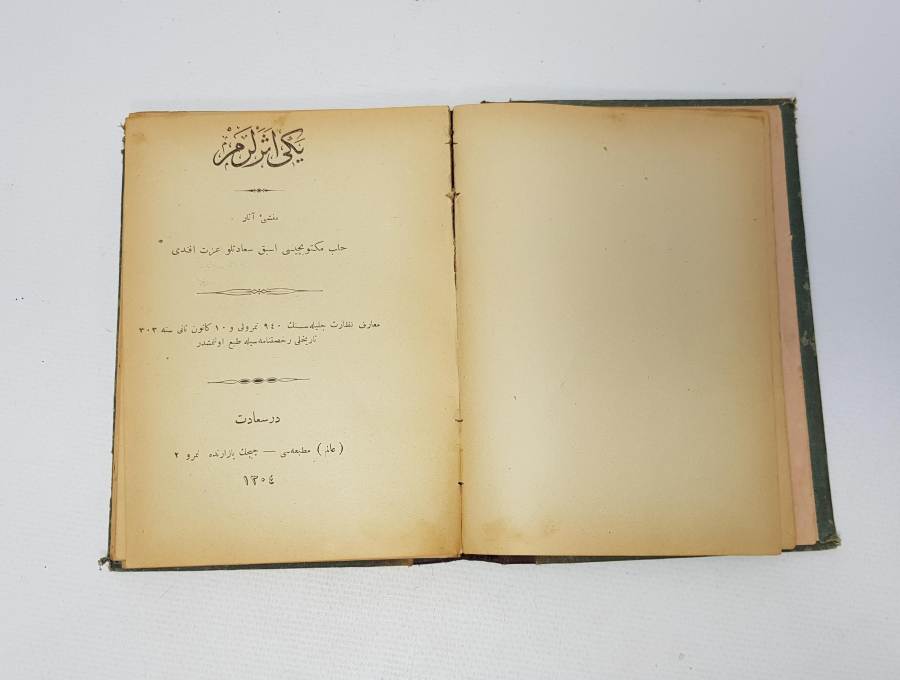 یكی اثرلرم
منشیٔ آثار
حلب مكتوبجیسی اسبق سعادتلو عزت افندی
معارف نظارت جلیله‌سنك ٩٤٠ نمرولی و ١٠ كانون ثانی سنه ٣٠٣
تاریخلی رخصتنامه‌سیله طبع اولنمشدر
درسعادت
(عالم) مطبعه‌سی — چیچك بازارنده نمرو ٢
١٣٠٤